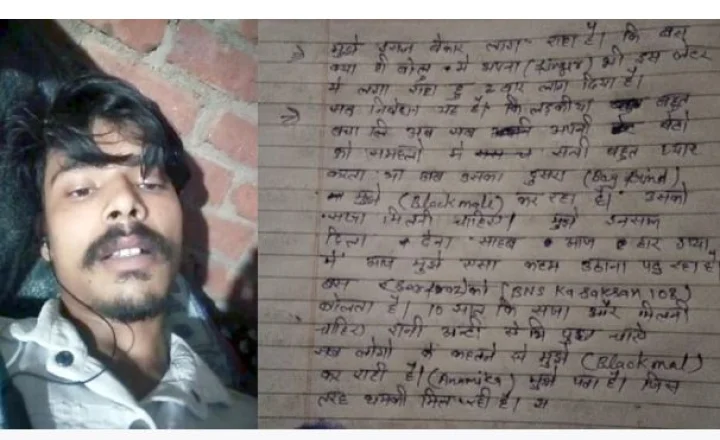 मुझे इगज बेकार लाग रहा है। कि
क्या में बोलू में अपना भी इस लेटर
में लगा रहा हु 2 बार लगा दिया है।
सब निवेदन यह है। कि लड़कीया बहुत
बचा लि अब सब अपनी बेटी
को समझलो में रानी बहुत प्यार
करता था अब उसका दुसरा (Boy frind)
मुझे (Blackmale) कर रहा है। उसको
सजा मिलनी चाहिए। मुझे इनसाफ
दिला देना साहब आज हार गया
में आज मुझे एसा कदम उठाना पड़ रहा है
बस (BNS Ka Saksan 108)
बोलता है। 10 साल कि सजा और मिलनी
चाहिए रानी अन्टी से भि पुछ चाहे
सब लोगो के कहने से मुझे (Blackmal)
कर राटी है। (Anamika) मुझे पता है। जिस
तरह धमकी मिल रही है।